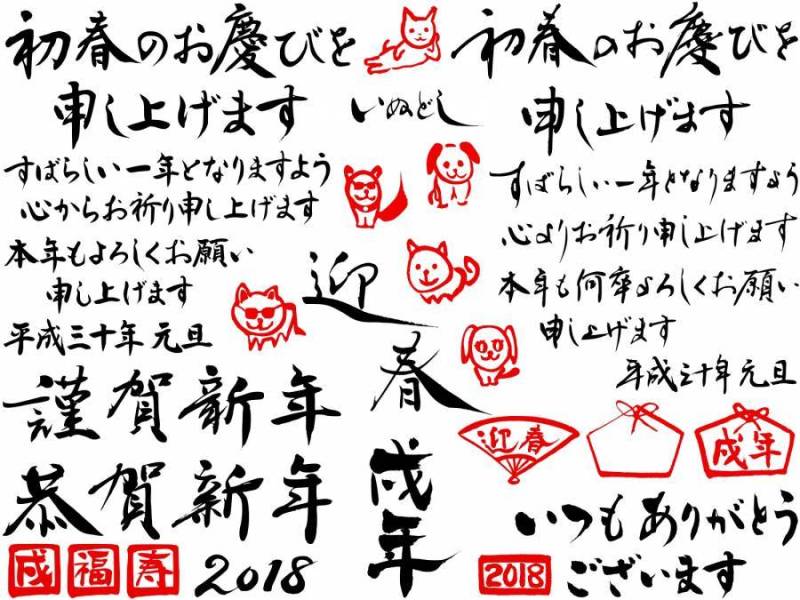 初春のお慶びを
申し上げます
すばらしい一年となりますよう
心からお祈り申し上げます
本年もよろしくお願い
申し上げます
平成三十年 元旦
謹賀新年
恭賀新年
戌 福 寿 2018
いぬどし
迎春
戌年
初春のお慶びを
申し上げます
すばらしい一年となりますよう
心よりお祈り申し上げます
本年も何卒よろしくお願い
申し上げます
平成三十年 元旦
迎春
戌年
いつもありがとう
ございます
2018